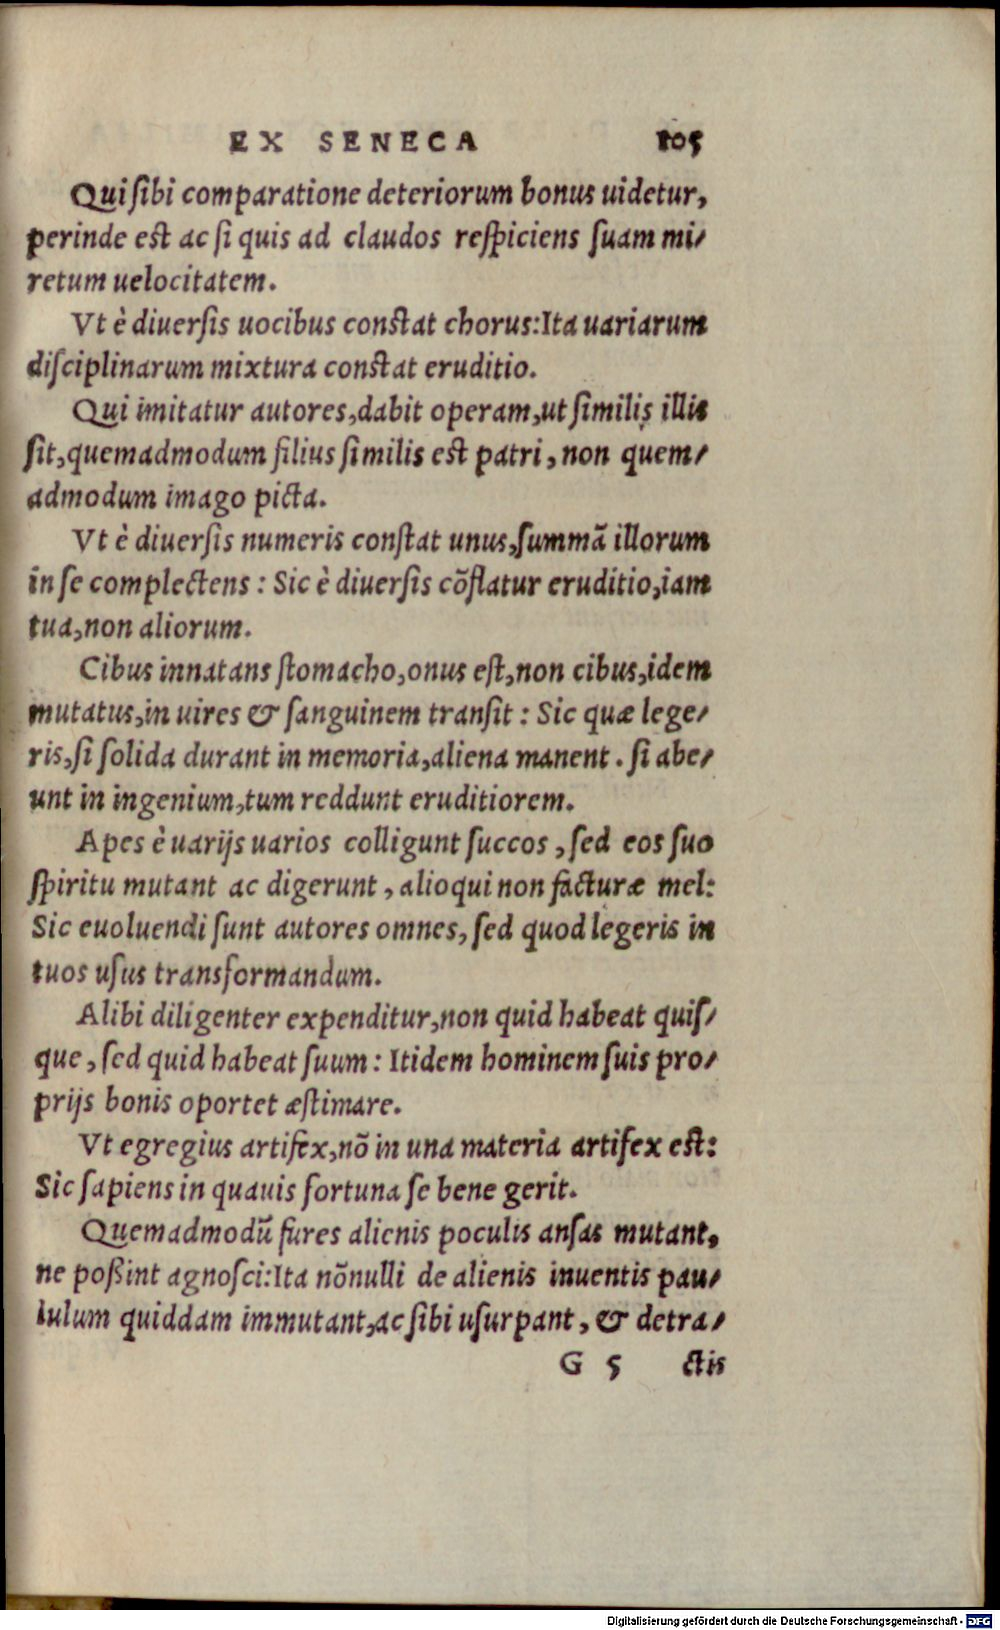 EX SENECA 105
Qui sibi comparatione deteriorum bonus uidetur,
perinde est ac si quis ad claudos respiciens suam mi/
retum uelocitatem.
Vt è diuersis uocibus constat chorus: Ita uariarum
disciplinarum mixtura constat eruditio.
Qui imitatur autores, dabit operam, ut similis illis
sit, quemadmodum filius similis est patri, non quem/
admodum imago picta.
Vt è diuersis numeris constat unus, summā illorum
in se complectens: Sic è diuersis cōflatur eruditio, iam
tua, non aliorum.
Cibus innatans stomacho, onus est, non cibus, idem
mutatus, in uires & sanguinem transit: Sic quæ lege/
ris, si solida durant in memoria, aliena manent. si abe/
unt in ingenium, tum reddunt eruditiorem.
Apes è uarijs uarios colligunt succos, sed eos suo
spiritu mutant ac digerunt, alioqui non facturæ mel:
Sic euoluendi sunt autores omnes, sed quod legeris in
tuos usus transformandum.
Alibi diligenter expenditur, non quid habeat quis/
que, sed quid habeat suum: Itidem hominem suis pro/
prijs bonis oportet æstimare.
Vt egregius artifex, nō in una materia artifex est:
Sic sapiens in quauis fortuna se bene gerit.
Quemadmodū fures alienis poculis ansas mutant,
ne poßint agnosci: Ita nōnulli de alienis inuentis pau/
lulum quiddam immutant, ac sibi usurpant, & detra/
G 5 ctis
Digitalisierung gefördert durch die Deutsche Forschungsgemeinschaft - DFG